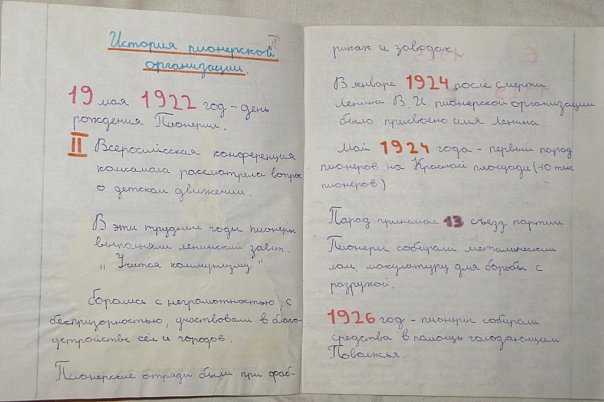 История пионерской
организации.
19 мая 1922 год - день
рождения Пионерии.
II Всероссийская конференция
комсомола рассмотрела вопрос
о детском движении.
В эти трудные годы пионеры
выполняли ленинский завет.
"Учится коммунизму"
боролись с неграмотностью, с
беспризорностью, участвовали в благо-
устройстве сёл и городов.
Пионерские отряды были при фаб-
риках и заводах.
В январе 1924 после смерти
Ленина В. И пионерской организации
было присвоено имя Ленина
Май 1924 года - первый парад
пионеров на Красной площади (10 тыс
пионеров)
Парад принимал 13 съезд партии
Пионеры собирали металический
лом, макулатуру для борьбы с
разрухой.
1926 год - пионеры собирали
средства в помощь голодающим
Поволжья.